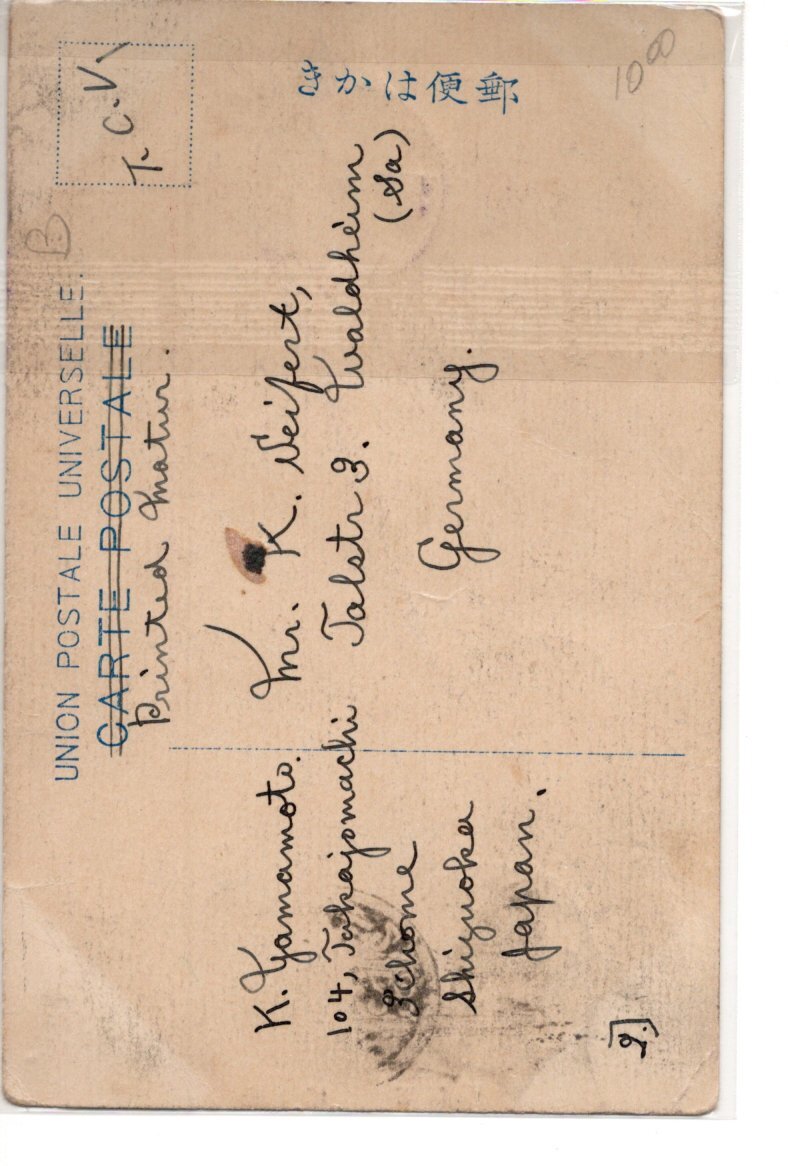 きかは便郵
10⁰⁰
T. C. V.
B
UNION POSTALE UNIVERSELLE.
CARTE POSTALE
Printed matur.
Mr. K. Seifert,
Talstr 3. Waldheim
(Sa)
Germany.
K. Yamamoto.
104, Takajomachi
3chome
Shizuoka
Japan.
9.